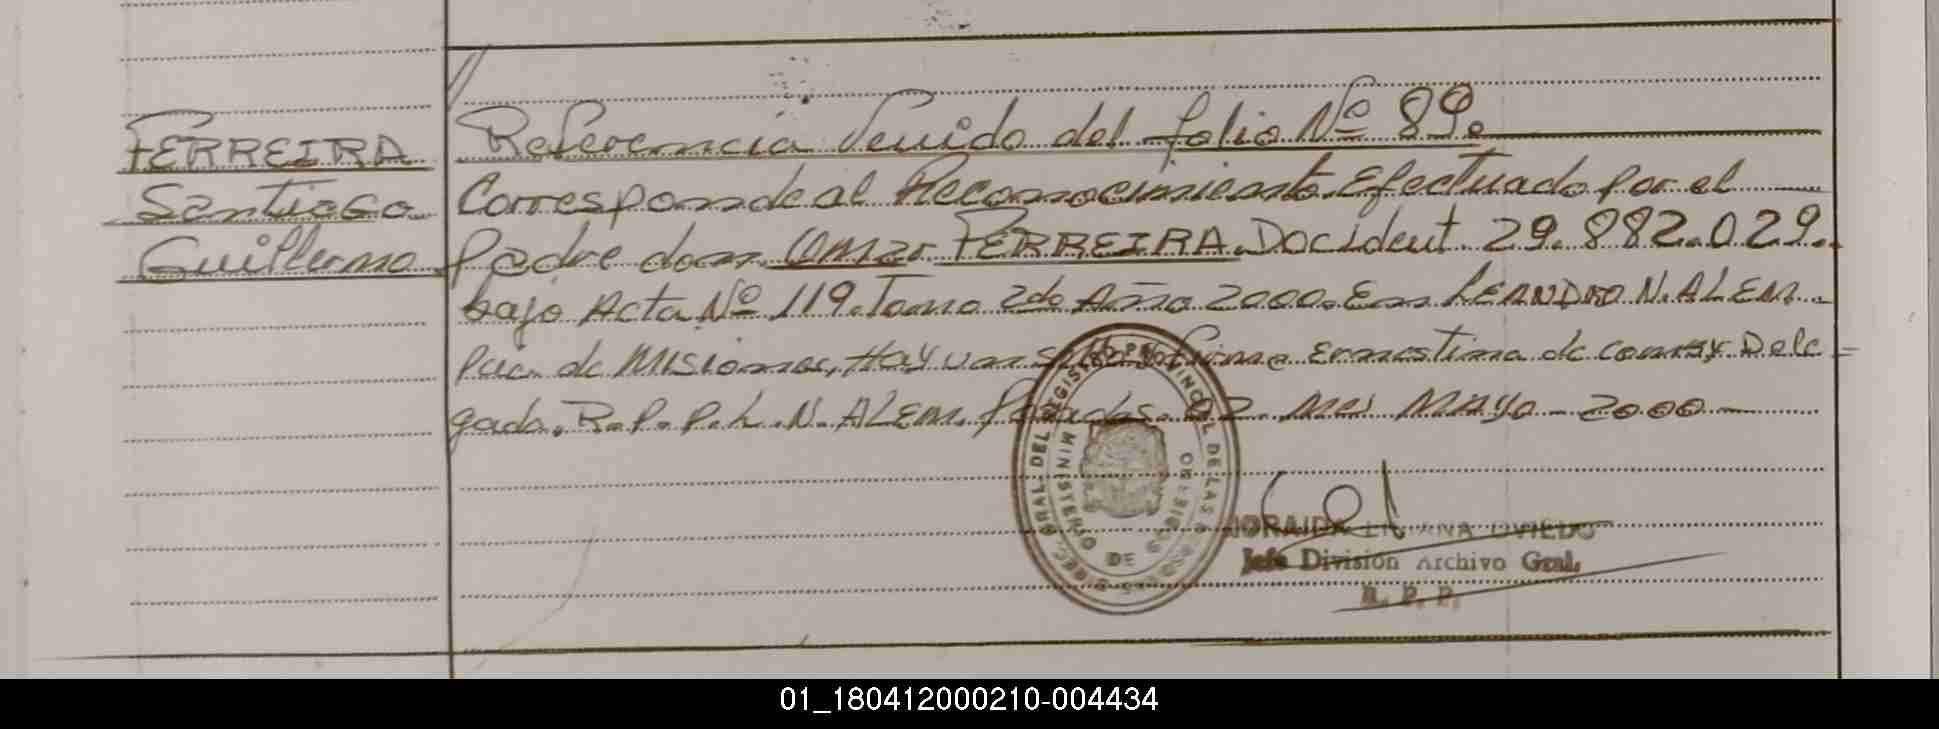 FERREIRA
Santiago
Guillermo
Referencia Venido del folio Nº 89.
Corresponde al Reconocimiento Efectuado por el
padre don Omar FERREIRA Doc ident 29.882.029.
bajo Acta Nº 119. Tomo 2do Año 2000. En LEANDRO N. ALEM.
Pcia de Misiones, Hay un sello y firma Ernestina de Dele=
gada. R.P.P.L.N. ALEM. Posadas. 02 MAYO 2000
GRAL DEL REGISTRO PROVINCIAL DE LAS
MINISTERIO DE
LILIANA OVIEDO
Jefe División Archivo Gral.
R. P. P.
01_180412000210-004434